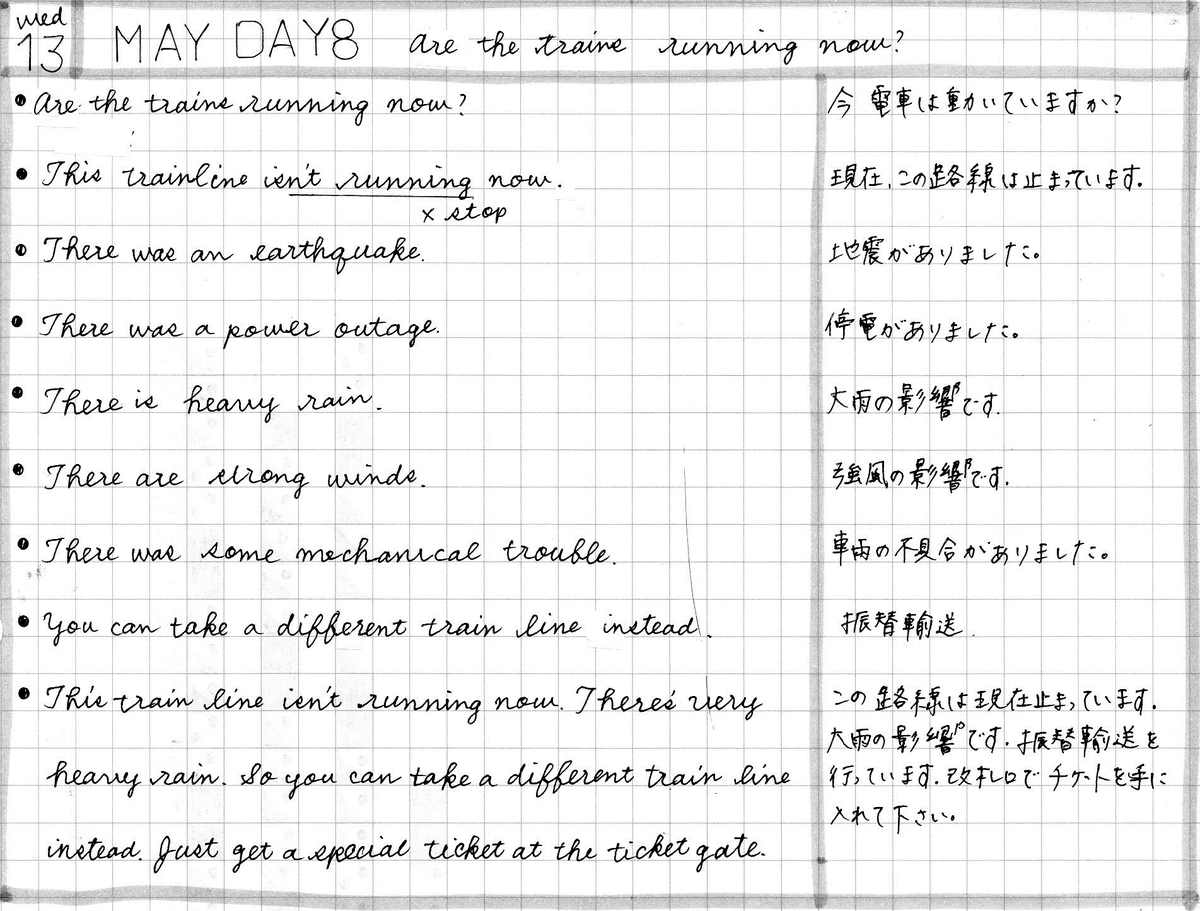 wed
13 MAY DAY8 Are the trains running now?
• Are the trains running now? 今 電車は動いていますか?
• This trainline isn't running now. 現在、この路線は止まっています.
× stop
• There was an earthquake. 地震がありました。
• There was a power outage. 停電がありました。
• There is heavy rain. 大雨の影響です.
• There are strong winds. 強風の影響です.
• There was some mechanical trouble. 車両の不具合がありました。
• You can take a different train line instead. 振替輸送.
• This train line isn't running now. There's very この路線は現在止まっています.
大雨の影響です. 振替輸送を
heavy rain. So you can take a different train line 行っています. 改札口でチケットを手に
入れて下さい。
instead. Just get a special ticket at the ticket gate.